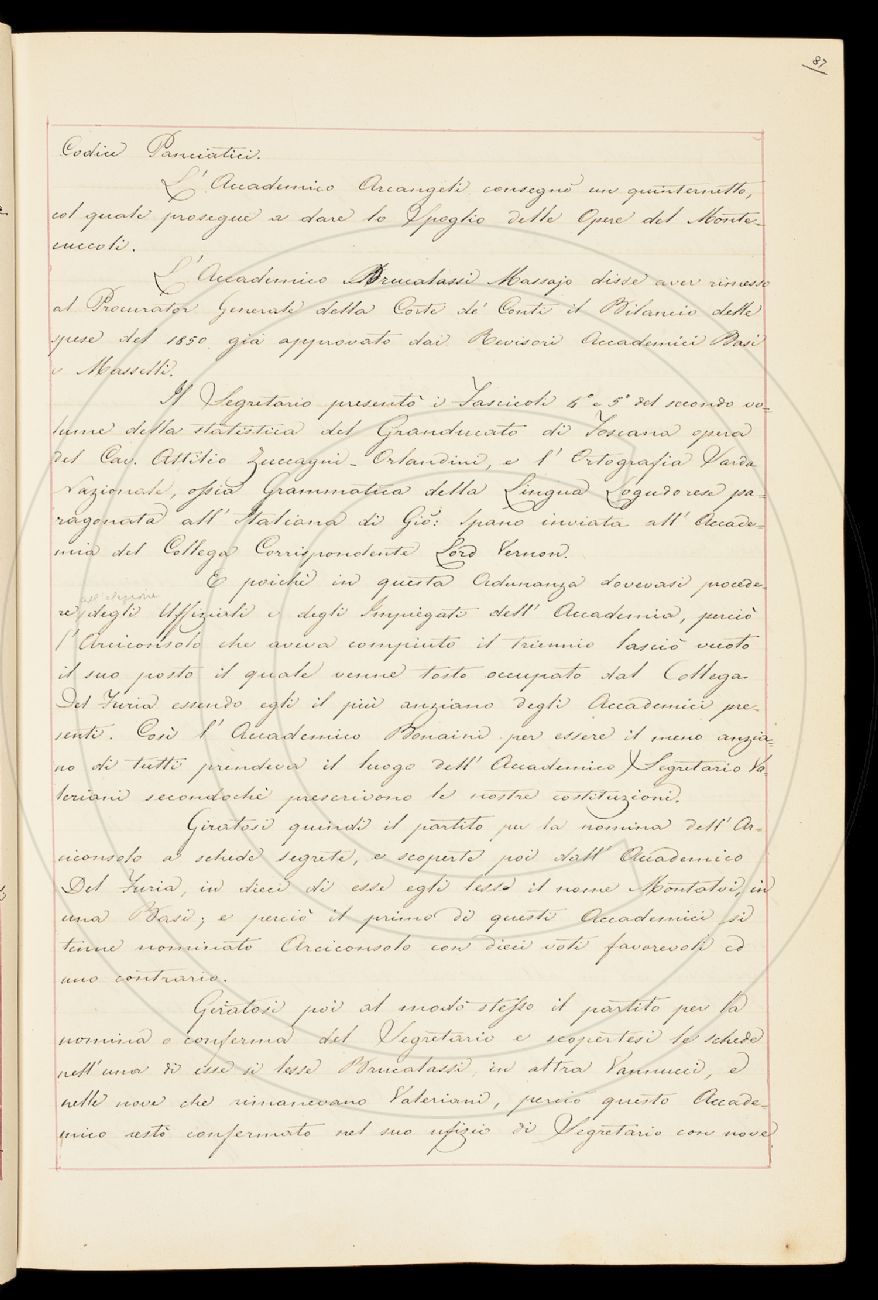 87
Codice Panciatici.
L'Accademico Arcangeli consegnò un quinternetto,
col quale prosegue a dare lo Spoglio delle Opere del Monte-
cuccoli.
L'Accademico Brucalassi Massajo disse aver rimesso
al Procurator Generale della Corte de' Conti il Bilancio delle
spese del 1850 già approvato dai Revisori Accademici Basi
e Masselli.
Il Segretario presentò i Fascicoli 4° e 5° del secondo vo-
lume della statistica del Granducato di Toscana opera
del Cav. Attilio Zuccagni-Orlandini, e l'Ortografia Sarda
Nazionale, ossia Grammatica della Lingua Logudorese pa-
ragonata all'Italiana di Gio: Spano inviata all'Accade-
mia dal Collega Corrispondente Lord Vernon.
E poichè in questa Adunanza dovevasi procede-
all'elezione
re degli Uffiziali e degli Impiegati dell'Accademia, perciò
l'Arciconsolo che aveva compiuto il triennio lasciò vuoto
il suo posto il quale venne tosto occupato dal Collega
Del Furia essendo egli il più anziano degli Accademici pre-
senti. Così l'Accademico Bonaini per essere il meno anzia-
no di tutti prendeva il luogo dell'Accademico Segretario Va-
leriani secondochè prescrivono le nostre costituzioni.
Giratosi quindi il partito per la nomina dell'Ar-
ciconsolo a schede segrete, e scoperte poi dall'Accademico
Del Furia, in dieci di esse egli lesse il nome Montalvi, in
una Basi; e perciò il primo di questi Accademici si
tenne nominato Arciconsolo con dieci voti favorevoli ed
uno contrario.
Giratosi poi al modo stesso il partito per la
nomina o conferma del Segretario e scopertesi le schede
nell'una di esse si lesse Brucalassi, in altra Vannucci, e
nelle nove che rimanevano Valeriani, perciò questo Accade-
mico restò confermato nel suo ufizio di Segretario con nove